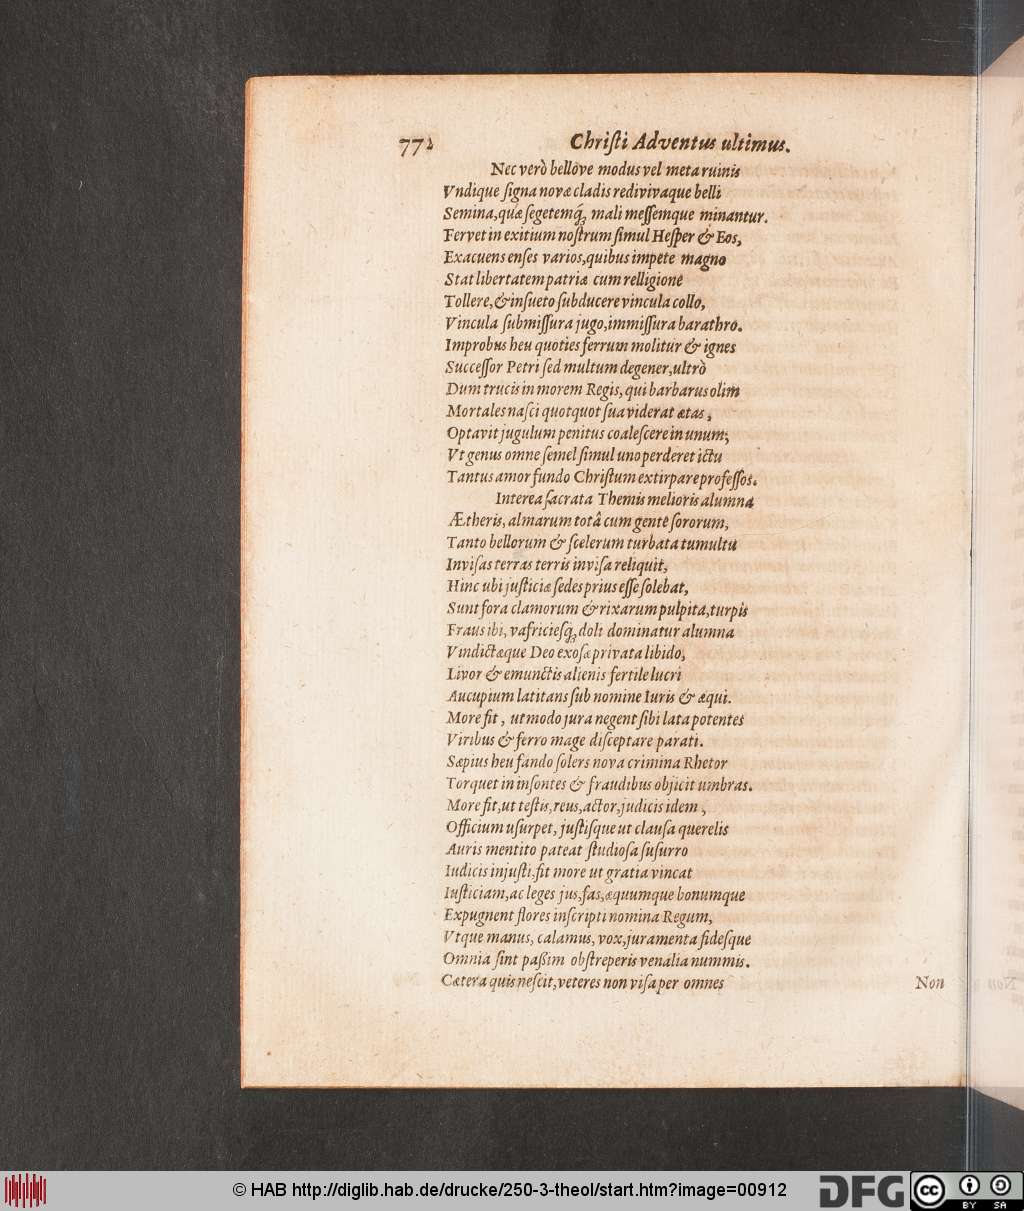 772 Christi Adventus ultimus.
Nec verò bellòve modus vel meta ruinis
Vndique signa novæ cladis redivivaque belli
Semina, quæ segetemq́; mali messemque minantur.
Fervet in exitium nostrum simul Hesper & Eos,
Exacuens enses varios, quibus impete magno
Stat libertatem patriæ cum relligione
Tollere, & insueto subducere vincula collo,
Vincula submissura jugo, immissura barathro.
Improbus heu quoties ferrum molitur & ignes
Successor Petri sed multum degener, ultrò
Dum trucis in morem Regis, qui barbarus olim
Mortales nasci quotquot sua viderat ætas,
Optavit jugulum penitus coalescere in unum;
Vt genus omne semel simul uno perderet ictu
Tantus amor fundo Christum extirpare professos.
Interea sacrata Themis melioris alumna
Ætheris, almarum totâ cum gente sororum,
Tanto bellorum & scelerum turbata tumultu
Invisas terras terris invisa reliquit,
Hinc ubi justiciæ sedes prius esse solebat,
Sunt fora clamorum & rixarum pulpita, turpis
Fraus ibi, vafriciesq́; doli dominatur alumna
Vindictæque Deo exosæ privata libido,
Livor & emunctis alienis fertile lucri
Aucupium latitans sub nomine Iuris & æqui.
More fit, ut modo jura negent sibi lata potentes
Viribus & ferro mage disceptare parati.
Sæpius heu fando solers nova crimina Rhetor
Torquet in insontes & fraudibus objicit umbras.
More fit, ut testis, reus, actor, judicis idem,
Officium usurpet, justisque ut clausa querelis
Auris mentito pateat studiosa susurro
Iudicis injusti, fit more ut gratia vincat
Iusticiam, ac leges jus, fas, æquumque bonumque
Expugnent flores inscripti nomina Regum,
Vtque manus, calamus, vox, juramenta fidesque
Omnia sint paßim obstreperis venalia nummis.
Cætera quis nescit, veteres non visa per omnes
Non
© HAB http://diglib.hab.de/drucke/250-3-theol/start.htm?image=00912
DFG
cc BY SA